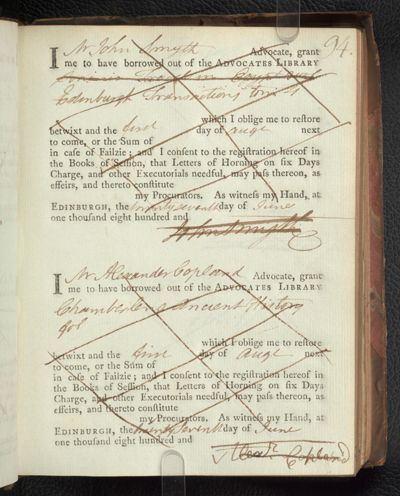 94.
I Mr John Smyth Advocate, grant
me to have borrowed out of the ADVOCATES LIBRARY
Edinburgh Transactions, tom: 1
which I oblige me to reſtore
betwixt and the first day of augt next
to come, or the Sum of
in caſe of Failzie; and I conſent to the regiſtration hereof in
the Books of Seſſion, that Letters of Horning on ſix Days
Charge, and other Executorials needful, may paſs thereon, as
effeirs, and thereto conſtitute
my Procurators. As witneſs my Hand, at
EDINBURGH, the twenty seventh day of June
one thouſand eight hundred and
John Smyth
I Mr Alexander Copland Advocate, grant
me to have borrowed out of the ADVOCATES LIBRARY
Ancient History
which I oblige me to reſtore
betwixt and the first day of augt next
to come, or the Sum of
in caſe of Failzie; and I conſent to the regiſtration hereof in
the Books of Seſſion, that Letters of Horning on ſix Days
Charge, and other Executorials needful, may paſs thereon, as
effeirs, and thereto conſtitute
my Procurators. As witneſs my Hand, at
EDINBURGH, the twenty seventh day of June
one thouſand eight hundred and
Alexr. Copland